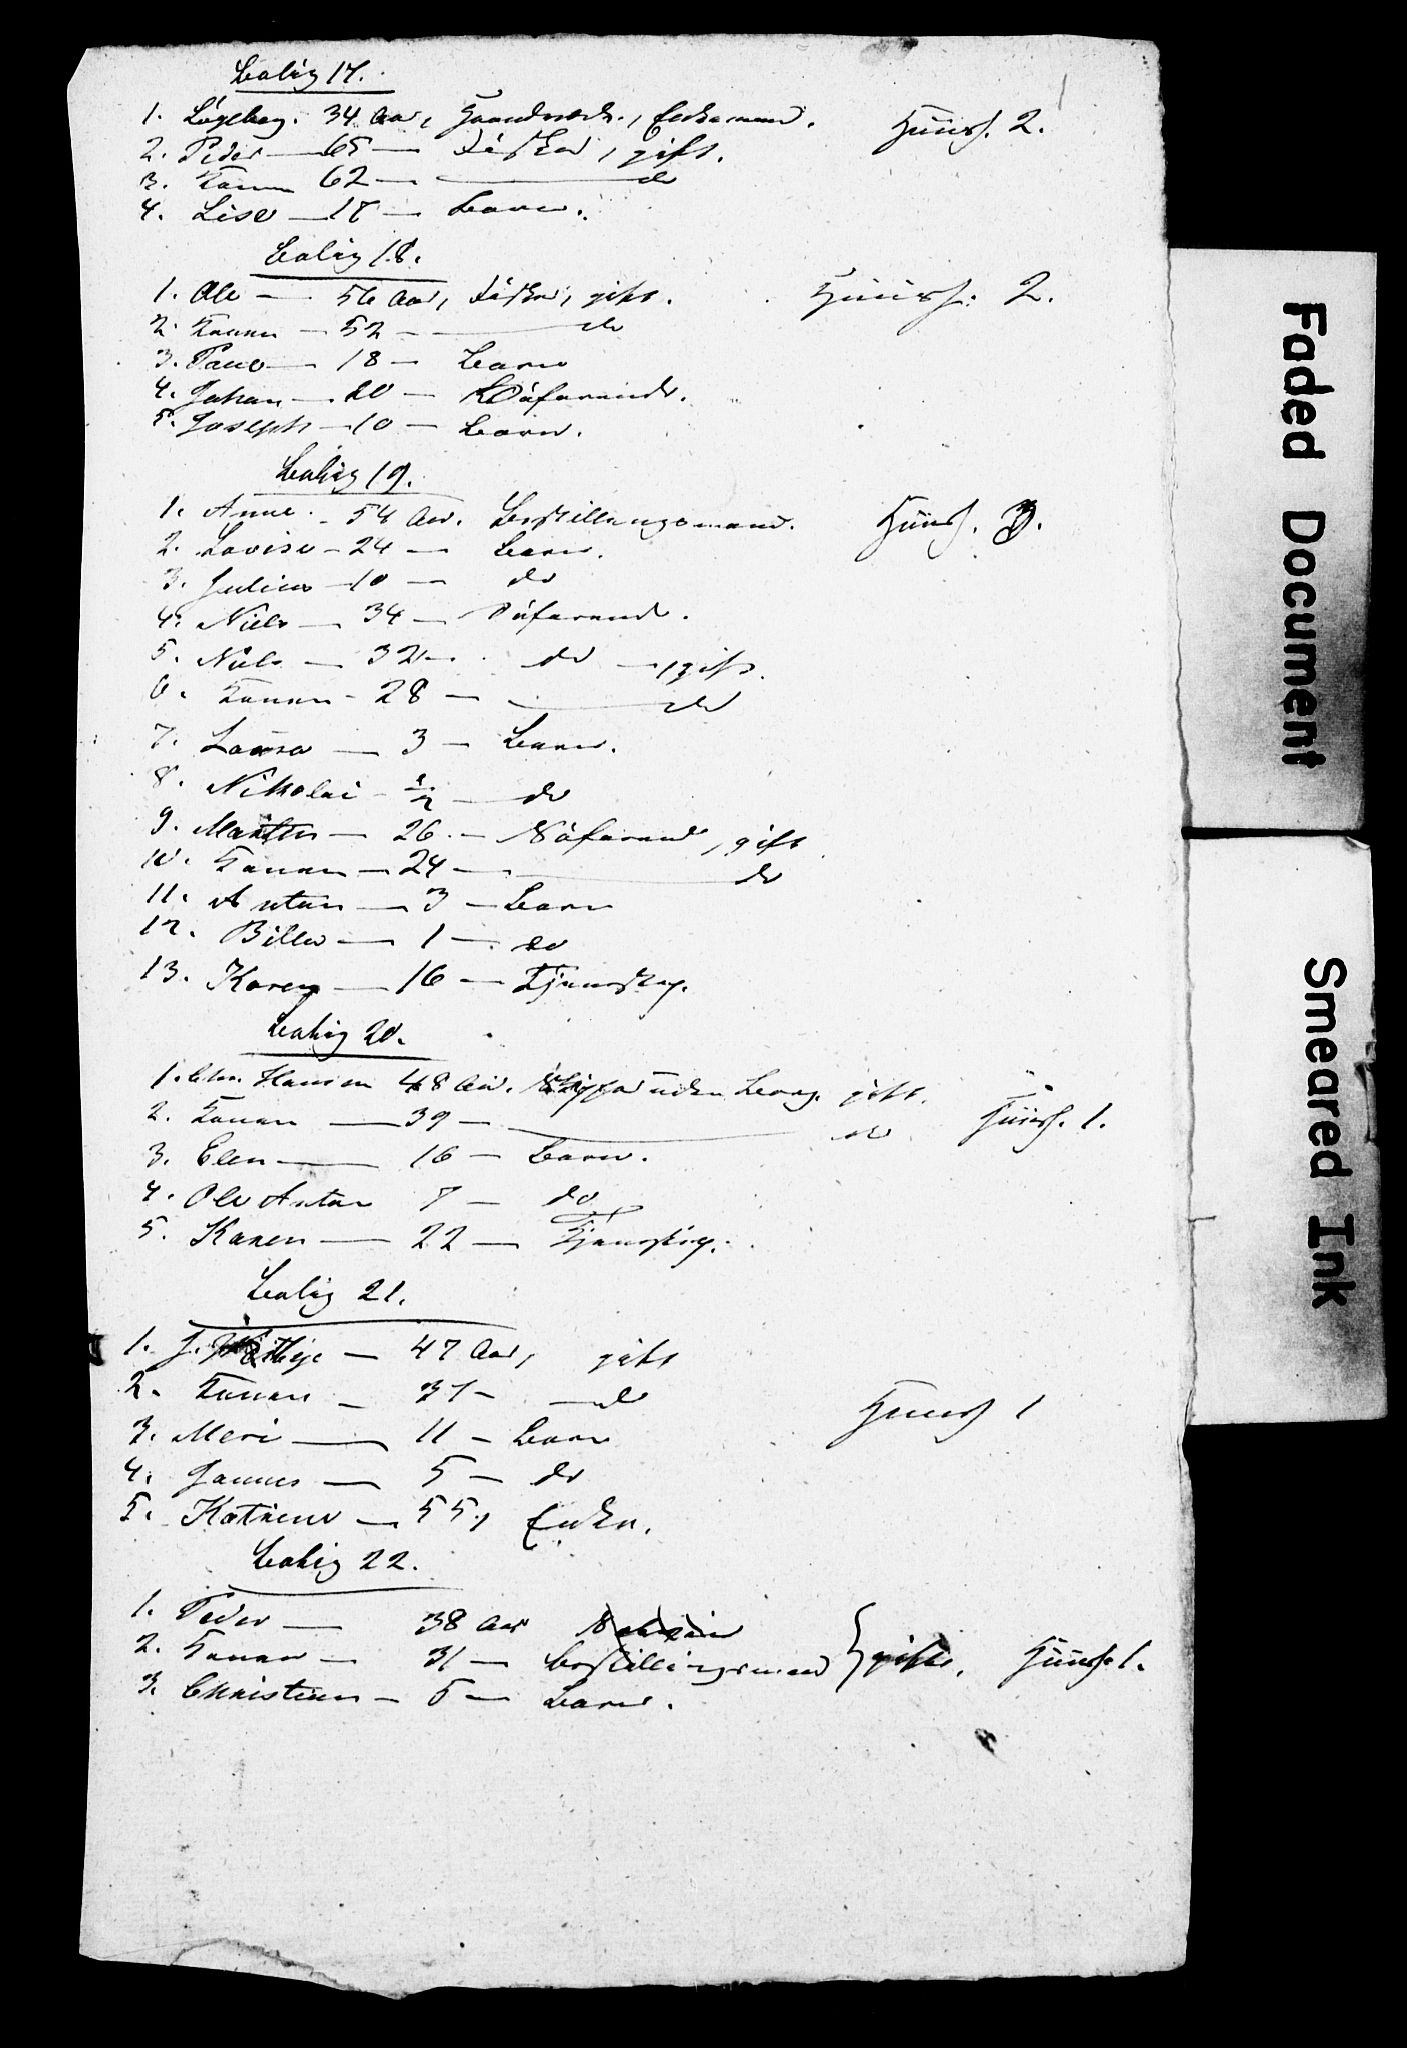 Bolig 17.
1. Løgeberg. 34 Aar, Haandværk., Enkemand. Huush. 2.
2. Peder — 65 — Fisker, gift.
3. Konen 62 — — do
4. Lise — 17 — Barn.
Bolig 18.
1. Ole — 56 Aar, Fisker, gift. Huush: 2.
2. Konen — 52 — — do
3. Pauo — 18 — Barn
4. Johan — 20 — Søfarende.
5. Joseph — 10 — Barn.
Bolig 19.
1. Anne. - 54 Aar. Bestillingsmand. Huush. 3.
2. Lovise - 24 — Barn.
3. Julius — 10 — do
4. Niels — 34 — Søfarend.
5. Niels — 32 — do — , gift.
6. Konen - 28 — — do
7. Laura — 3 — Barn.
8. Nikolai - 1/2 — do
9. Martin — 26 — Søfarend, gift
10. Konen — 24 — — do
11. Anton — 3 — Barn
12. Billa — 1 — do
13. Karen — 16 — Tjenestep.
Bolig 20.
1. Chr. Hansen 48 Aar. Skipper uden Borg. gift.
2. Konen — 39 — — do Huush. 1.
3. Elen — 16 — Barn.
4. Ole Anton 7 — do
5. Karen — 22 — Tjenestep.
Bolig 21.
1. J. Hilleje — 47 Aar, gift
2. Konen — 37 - — do Huush 1
3. Meri — 11 - Barn
4. Hannes — 5 — do
5. Katrine — 55, Enke.
Bolig 22.
1. Peder — 38 Aar
2. Konen — 31 — Bestillingsmand } gifte. Huush. 1.
3. Christian — 5 — Barn.
Faded Document
Smeared Ink